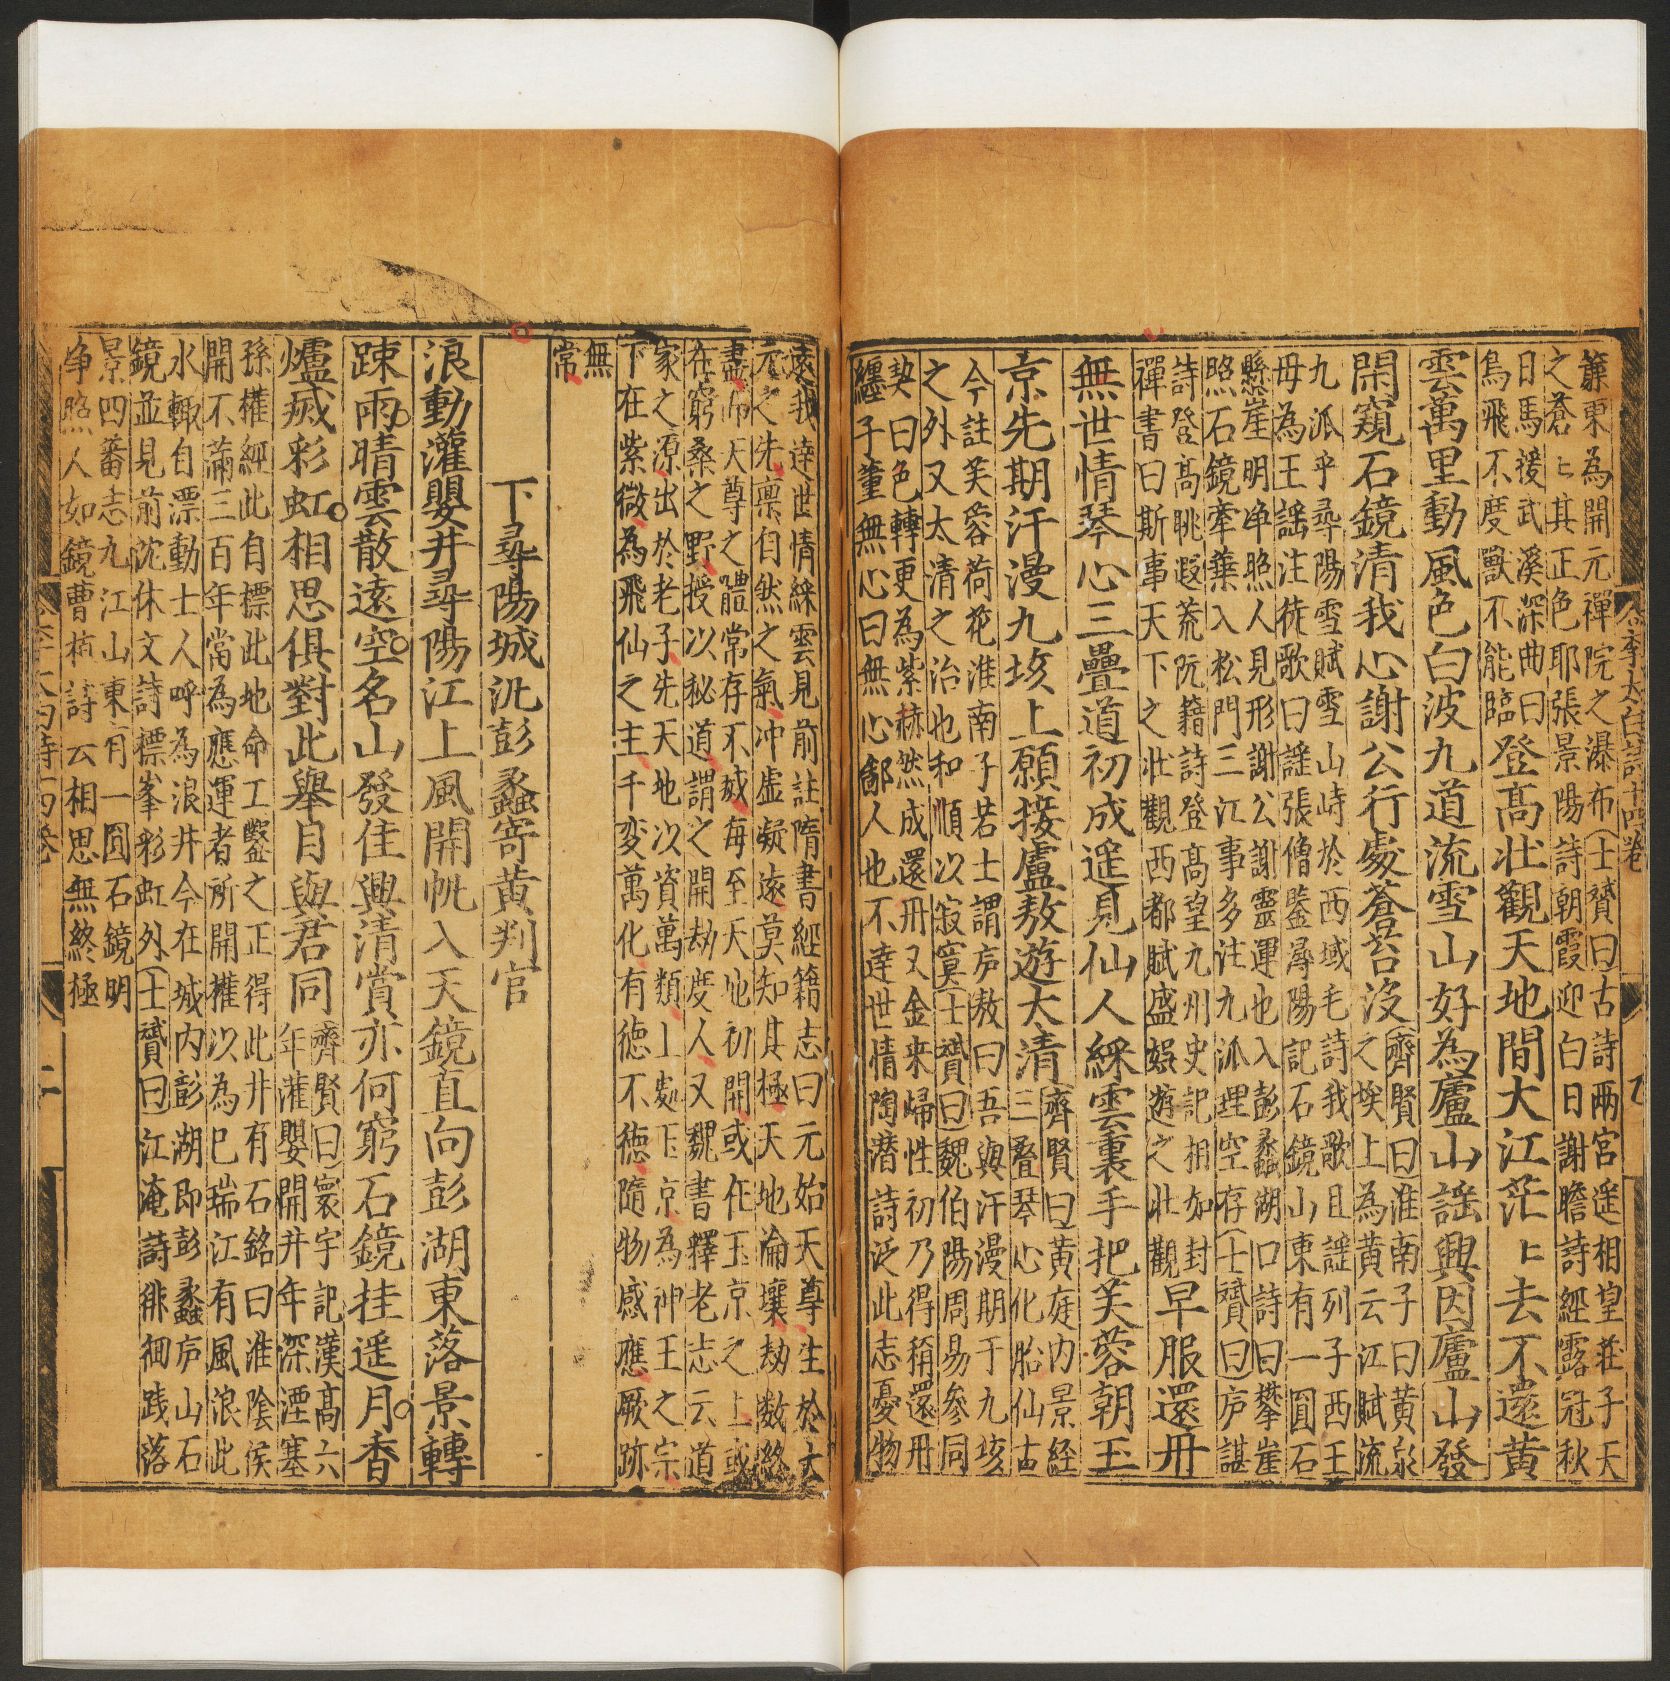 簾東為開元禪院之瀑布士贇曰古詩兩宮遥相望莊子天
之蒼〻其正色耶張景陽詩朝霞迎白日謝瞻詩經露冠秋
日馬援武溪深曲曰
鳥飛不度獸不能臨
登髙壮觀天地間大江茫〻去不還黄
雲萬里動風色白波九道流雪山好為廬山謡興因廬山發
閑窺石鏡清我心謝公行處蒼苔没
齊賢曰淮南子曰黄泉
之埃上為黄云江賦流
九派乎㝷陽雪賦雪山峙於西域毛詩我歌且謡列子西王
母為王謡注徒歌曰謡張僧鑒潯陽記石鏡山東有一圓石
縣崖明净照人見形謝公謝靈運也入彭蠡湖口詩曰攀崖
照石鏡牽葉入松門三江事多注九派理空存士贇曰庐諶
詩登髙眺遐荒阮籍詩登髙望九州史記相如封
禪書曰斯事天下之壮觀西都賦盛娱遊之壮觀
早服還丹
無世情琴心三疊道初成遥見仙人綵雲裏手把芙蓉朝玉
京先期汗漫九垓上願接盧敖遊大清
齊賢曰黄庭内景経
三疊琴心化胎仙古
今註芙蓉荷花淮南子若士謂庐敖曰吾與汗漫期于九垓
之外又太清之治也和順以寂寞士贇曰魏伯陽周易參同
契曰色轉更為紫赫然成還丹又金来歸性初乃得稱還丹
纒子董無心曰無心鄙人也不逹世情陶潜詩泛此忘憂物
遠我逹世情綵雲見前註隋書經籍志曰元始天尊生於太
元之先禀自然之氣冲虚凝遠莫知其極天地淪壞劫数終
盡而天尊之體常存不滅每至天地初開或在玉京之上或
在窮桑之野授以秘道謂之開劫度人又魏書釋老志云道
家之源出於老子先天地以資萬類上處玉京為神王之宗
下在紫微為飛仙之主千变萬化有徳不徳隨物感應厥跡
無
常
下㝷陽城汎彭蠡寄黄判官
浪動灌嬰井㝷陽江上風開帆入天鏡直向彭湖東落景轉
踈雨晴雲散遠空名山發佳興清賞亦何窮石鏡挂遥月香
爐滅彩虹相思俱對此舉目與君同
齊賢曰寰宇記漢髙六
年灌嬰開井年深湮塞
孫權經此自標此地命工鑿之正得此井有石銘曰淮陰侯
開不滿三百年當為應運者所開權以為己瑞江有風浪此
水輙自漂動士人呼為浪井今在城内彭湖即彭蠡庐山石
鏡並見前沈休文詩標峯彩虹外士贇曰江淹詩徘徊踐落
景四番志九江山東有一圓石鏡明
净照人如鏡曹植詩云相思無終極